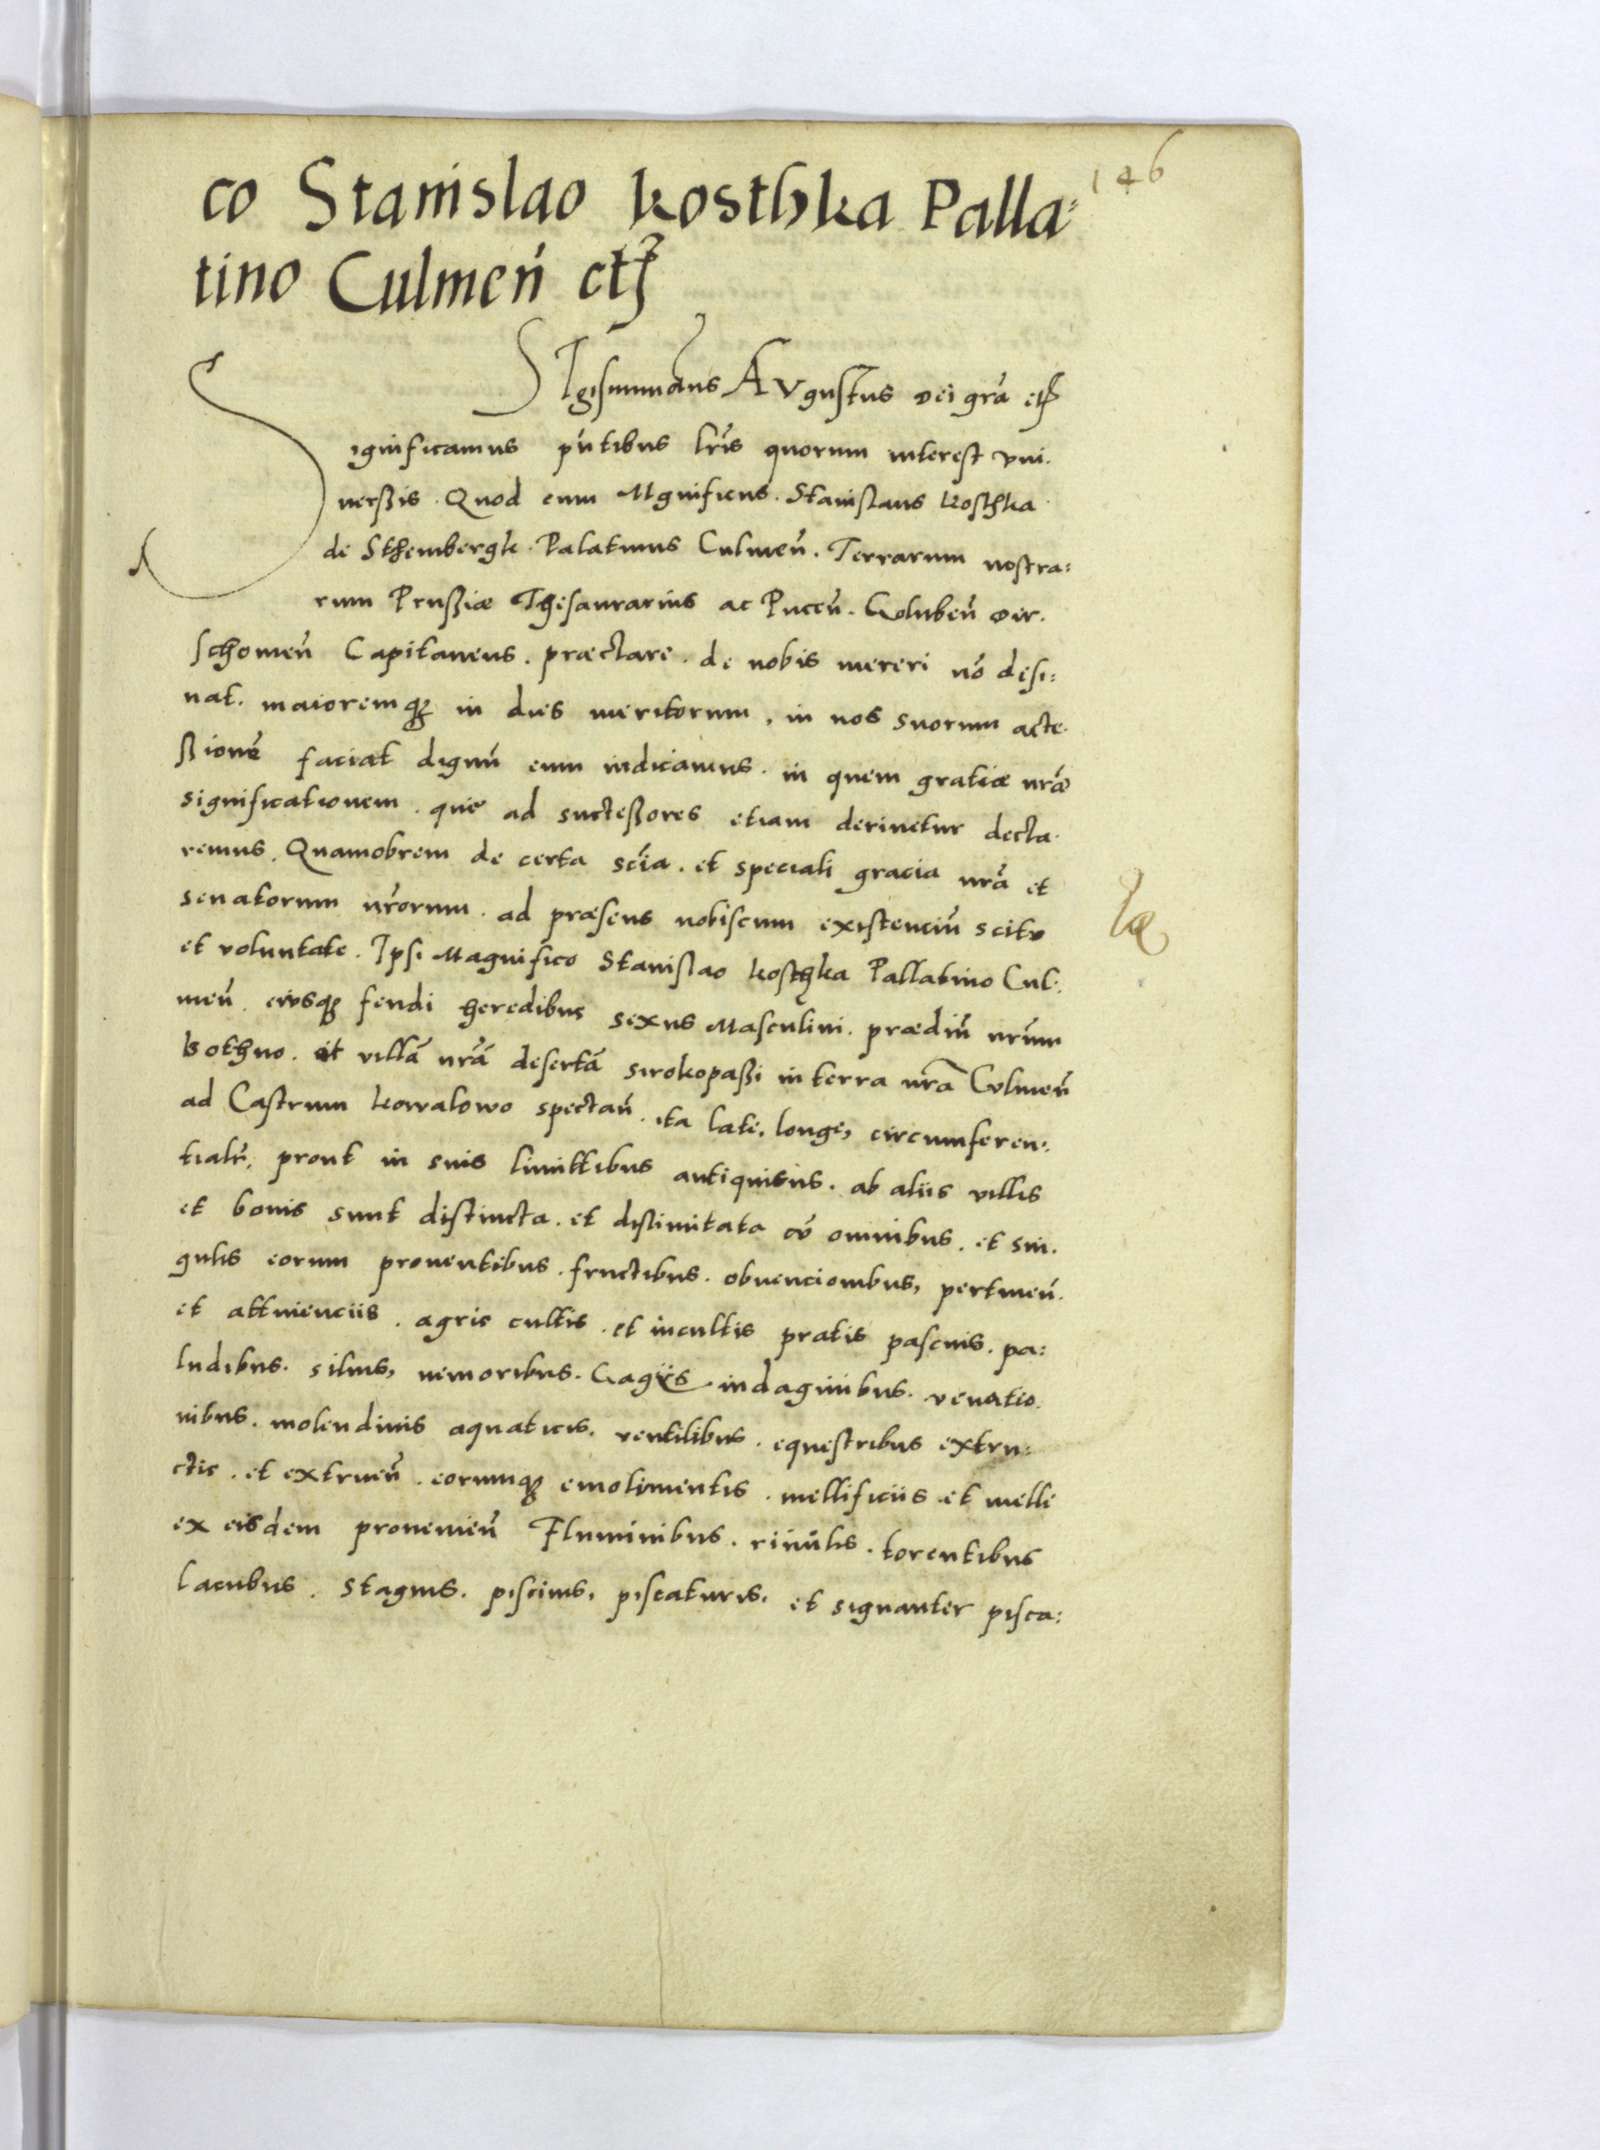 146
co Stanislao Kosthka Palla=
tino Culmeń etꝫ
SIgismundus AVgustus Dei grã etꝫ
Significamus pñtibus lr̃is quorum interest vni.
uersis. Quod cum Mgnificus. Stanislaus Kosthka
de Sthembergk. Palatinus Culmeñ. Terrarum nostra=
rum Prussiæ Thesaurarius ac Puceñ. Golubeñ Dir.
schoueñ Capitaneus. præclare. de nobis mereri nõ desi=
nat. maioremqꝫ in dies meritorum, in nos suorum acce.
ssionẽ faciat dignũ eum iudicamus. in quem gratiæ nr̃æ
significationem. que ad successores etiam deriuetur decla.
remus. Quamobrem de certa scĩa. et speciali gracia nr̃a et
senatorum nr̃orum. ad præsens nobiscum existenciũ scitv
et voluntate. Ipsi Magnifico Stanislao Kosthka Pallatino Cul.
meñ. eivsqꝫ feudi heredibus sexus Masculini. prædiũ nr̃um
Bothno. et villã nr̃ã desertã sirokopassi in terra nr̃a Cvlmeñ
ad Castrum Kowalowo spectañ. ita late, longe, circumferen=
tialr̃, prout in suis limittibus antiquis. ab aliis villis
et bonis sunt distincta. et dislimitata cũ omnibus. et sin.
gulis eorum prouentibus. fructibus. obuencionibus, pertineñ.
et attinenciis. agris cultis. et incultis pratis pascuis. pa=
ludibus. siluis, nemoribus. Gagiis indaginibus. venatio.
nibus. molendinis aquaticis. ventilibus. equestribus extru=
ctis. et extrueñ. eorumqꝫ emolimentis. mellificiis. et melle
ex eisdem proueuieñ Fluminibus. riuulis. torentibus
lacubus. stagnis. piscinis, piscaturis. et signanter pisca=